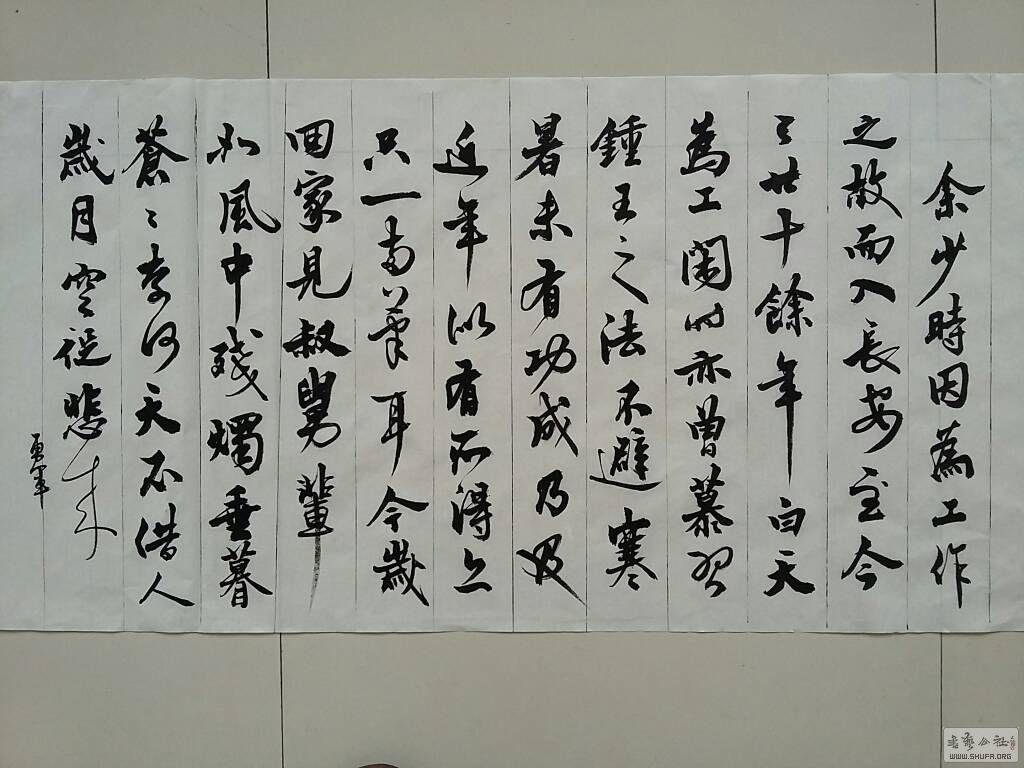 余少時因為工作
之故而入長安至今
已廿十餘年白天
為工闲时亦曾慕習
鍾王之法不避寒
暑未有功成乃及
近年似有所得亦
只一筆耳今歲
回家見叔舅輩
如風中殘燭垂暮
蒼〻奈何天不借人
歲月空徒悲来
书艺公社
WWW.SHUFA.ORG